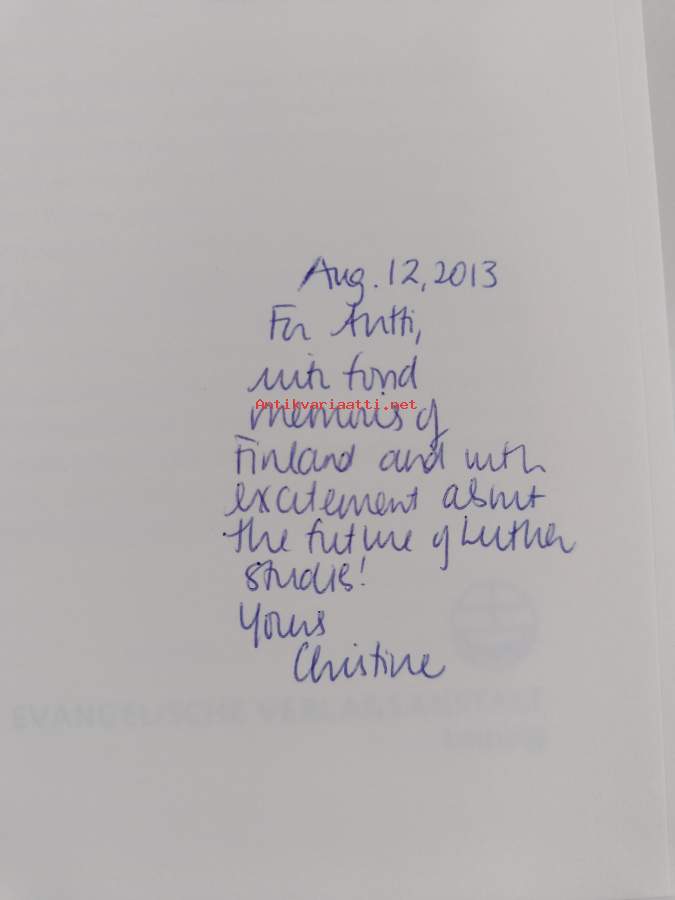 Aug. 12, 2013
For Antti,
with fond
Antikvariaatti.net
memories of
Finland and with
excitement about
the future of Luther
studies!
Yours
Christine
EVANGELISCHE VERLAGSANSTALT
Leipzig